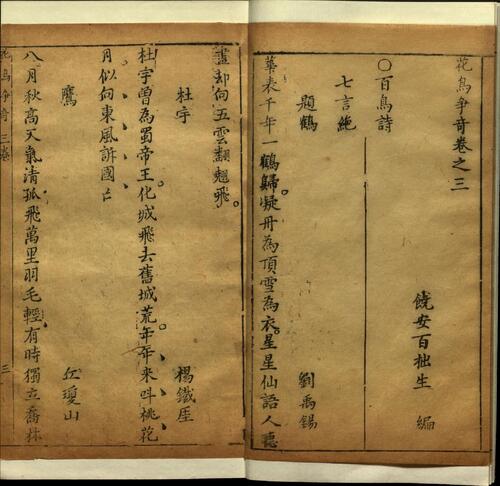 花鳥爭奇卷之三
饒安百拙生 編
〇百鳥詩
七言絶
題鶴 劉禹錫
華表千年一鶴歸凝丹為頂雪為衣星星仙語人聽
盡却向五雲翻翅飛
杜宇 楊鐵厓
杜宇曾為蜀帝王化城飛去舊城荒年年來呌桃花
月似向東風訴國亡
鷹 丘瓊山
八月秋高天氣清孤飛萬里羽毛輕有時獨立喬林
花鳥爭奇 三卷 三